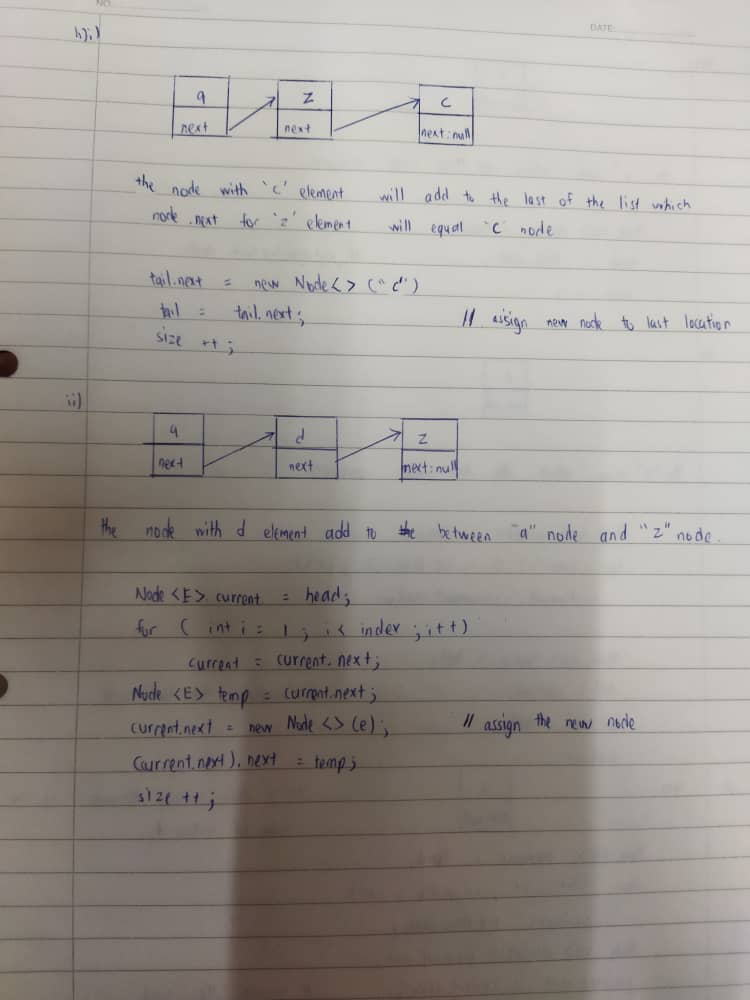 NO.
DATE:
h)i)
a z c
next next next:null
the node with 'c' element will add to the last of the list which
node.next for 'z' element will equal 'c' node
tail.next = new Node<> ("c")
tail = tail.next; // assign new node to last location
size ++;
ii)
a d z
next next next:null
the node with d element add to between "a" node and "z" node.
Node <E> current = head;
for ( int i = 1 ; i < index ; i++)
current = current.next;
Node <E> temp = current.next;
current.next = new Node <> (e); // assign the new node
(current.next).next = temp;
size ++;